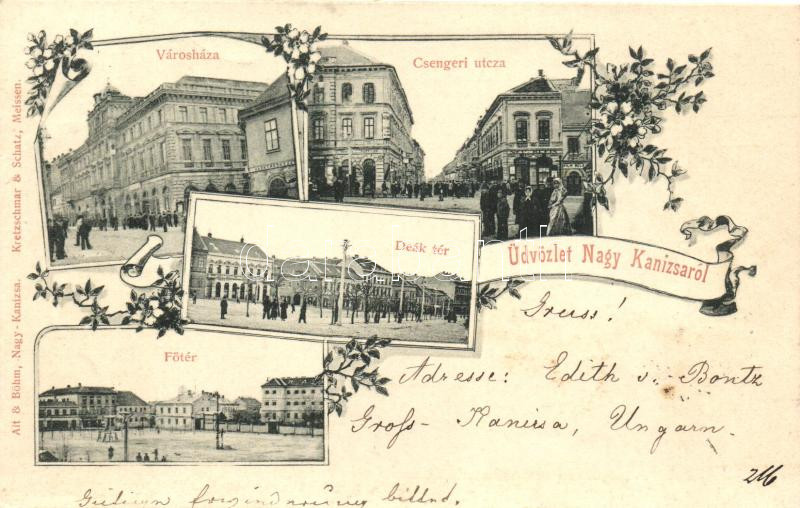 Városháza
Csengeri utcza
Deák tér
Üdvözlet Nagy Kanizsaról
Főtér
Alt & Böhm, Nagy-Kanizsa. Kretzschmar & Schatz, Meissen.
Gruss!
Adresse: Edith v. Bontz
Groß-Kanissa, Ungarn.
216
bittend.